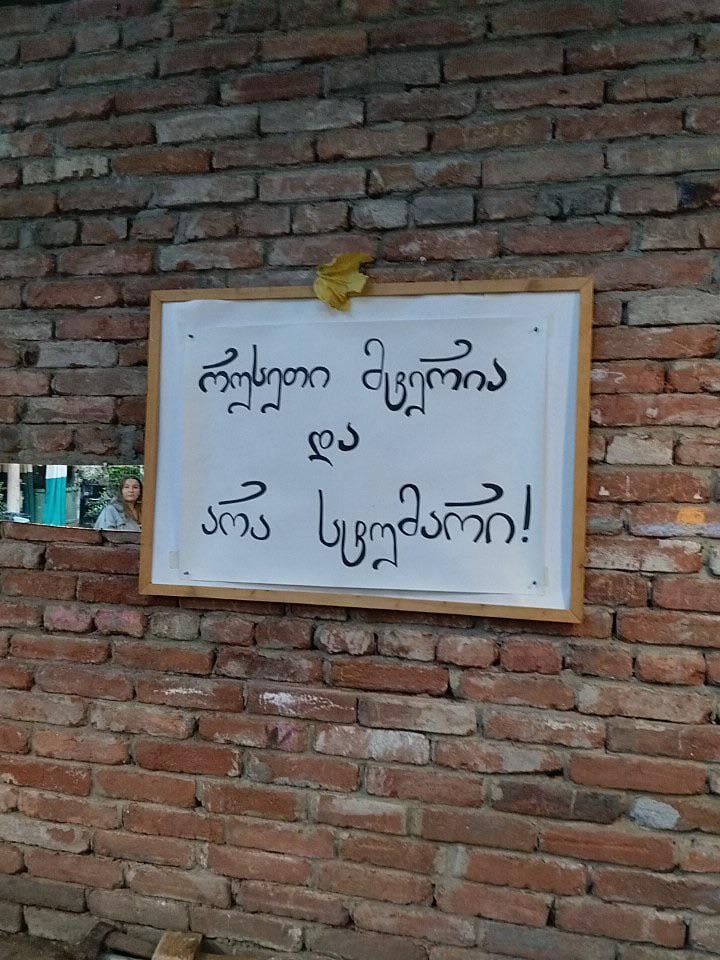 რუსეთი მტერია
და
არა სტუმარი!